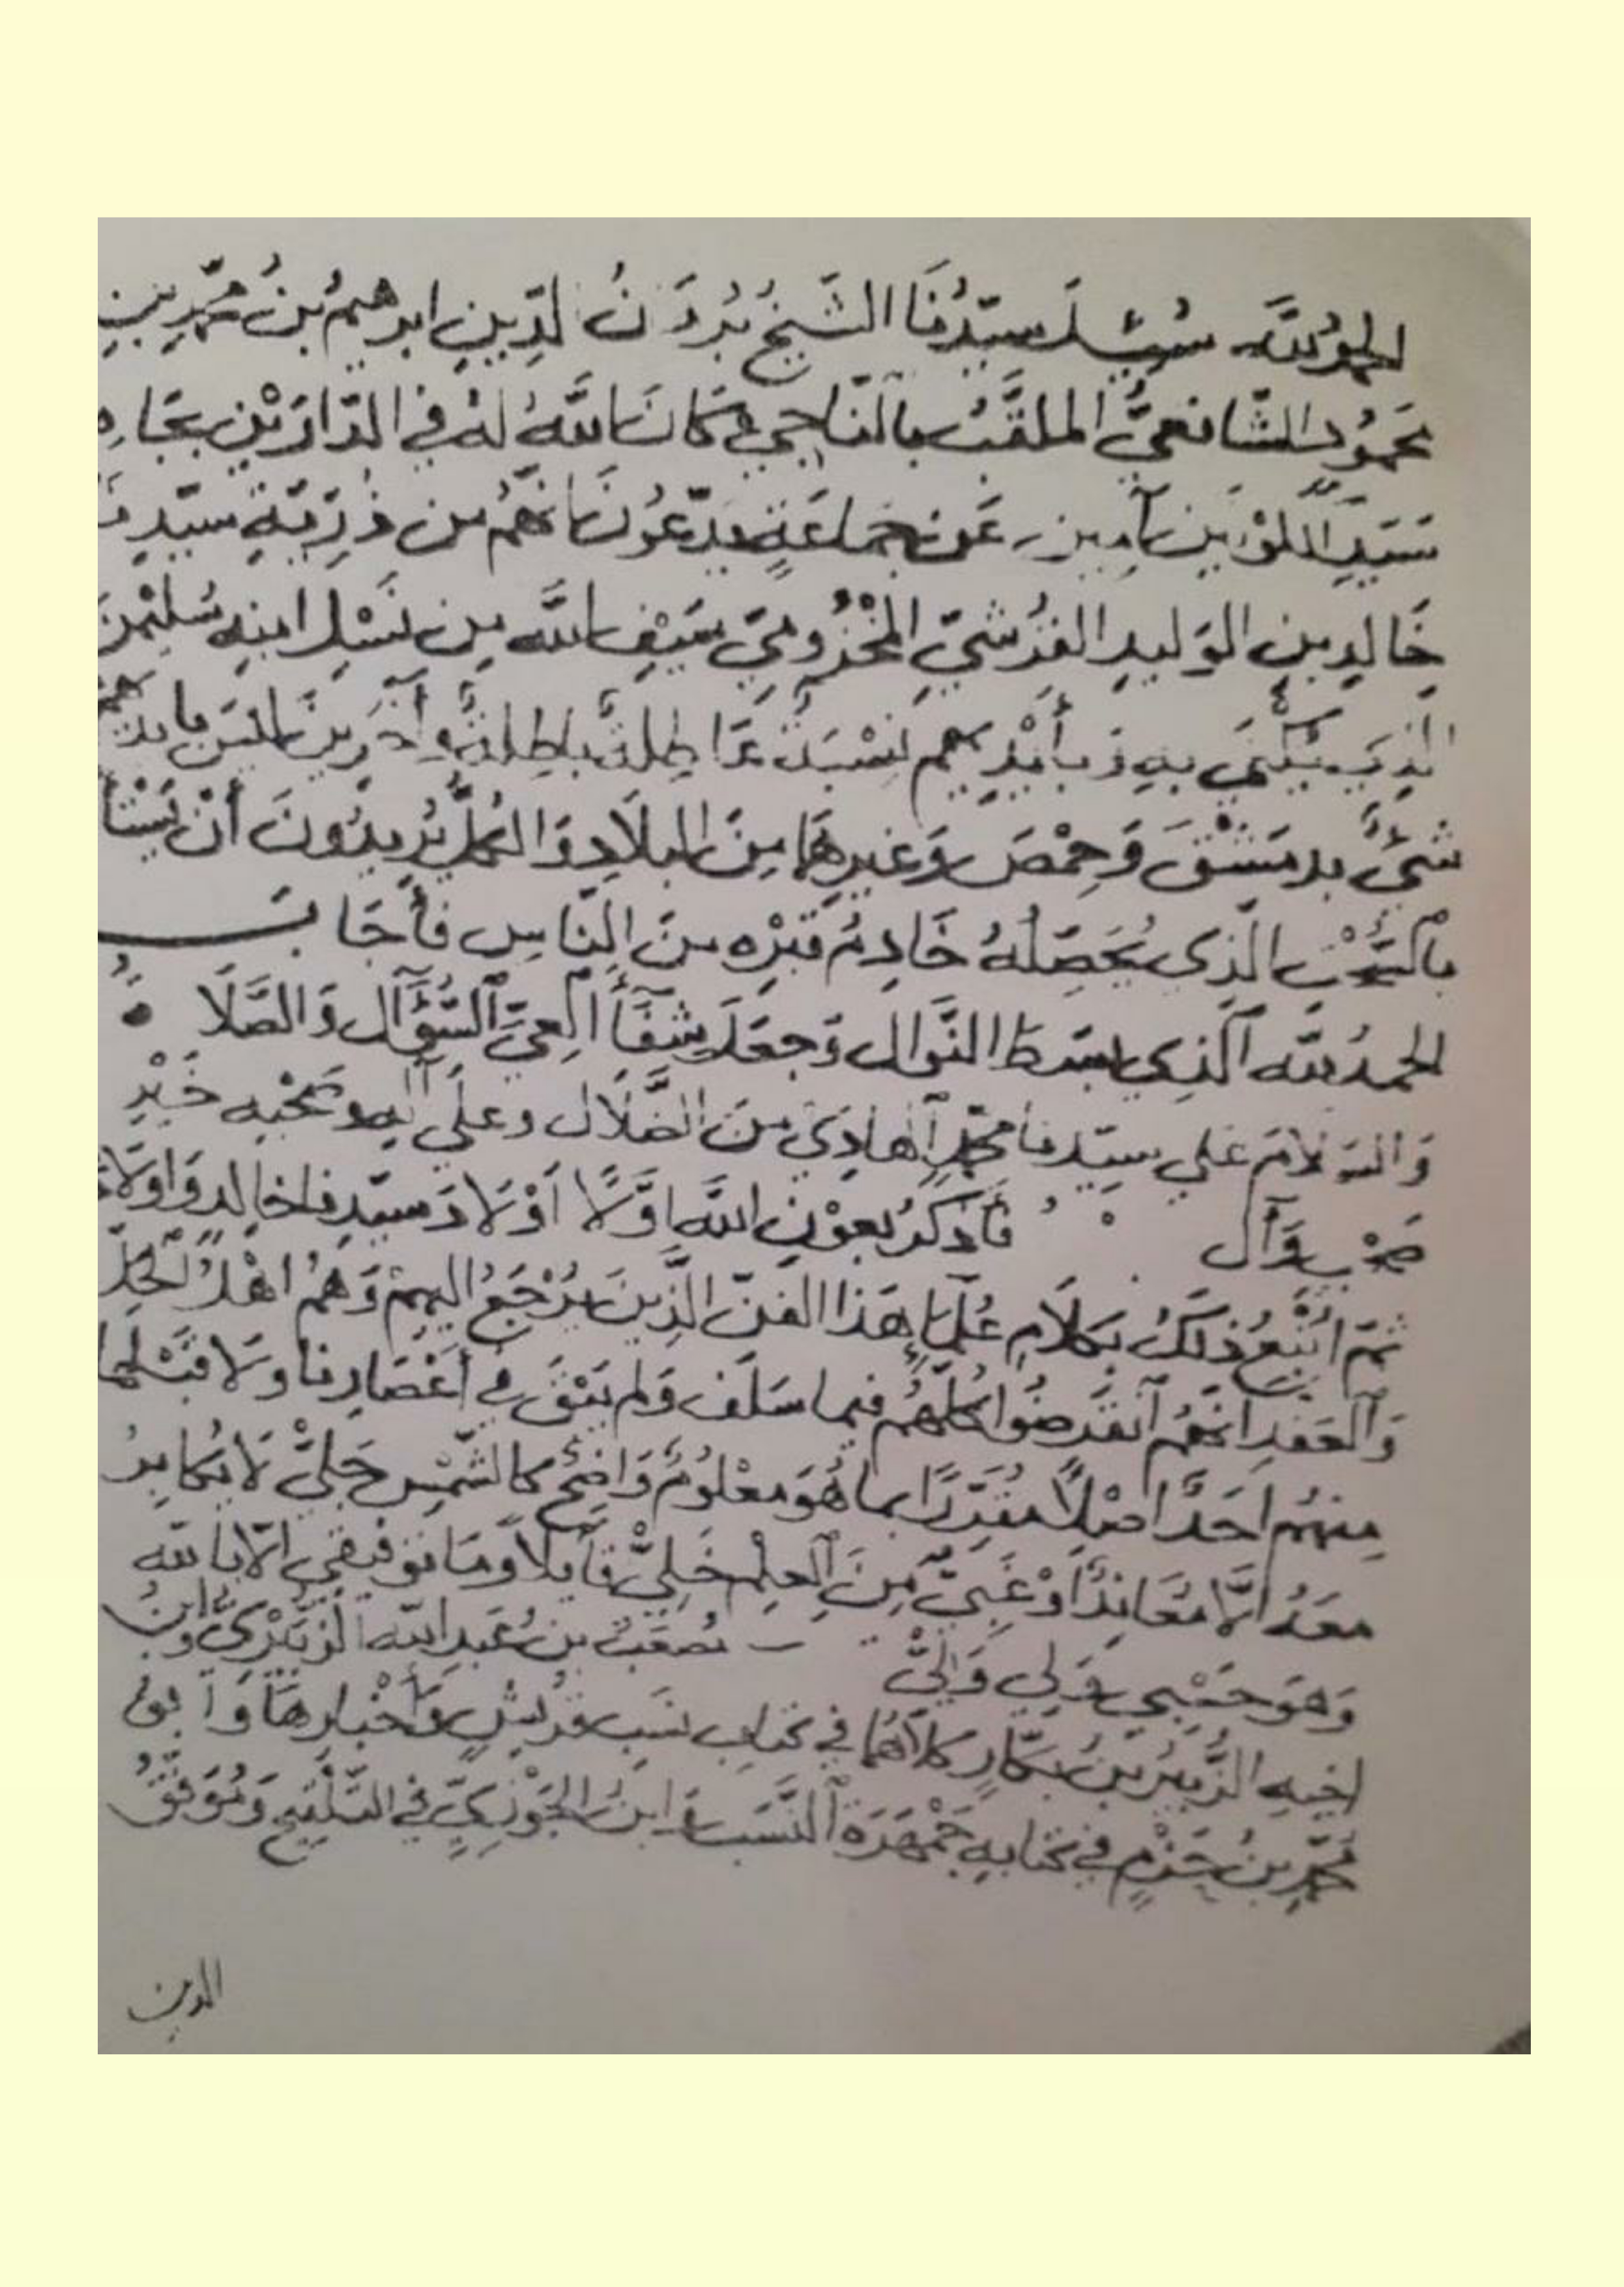 الحمد لله سُئِلَ سيّدُنَا الشيخ بُرهَانُ الدّين ابرهيمُ بنُ محمّدِ بنِ
محمُودٍ الشّافعيُّ الملقّبُ بالنّاجي كَانَ اللهُ لهُ في الدّارَيْنِ بجَاهِ
سَيّدِ الكَوْنَيْنِ آمين عَن جماعَةٍ يدّعُونَ انّهُم من ذُرّيّةِ سيّدِنَا
خَالِدِ بنِ الوَليدِ القُرَشيّ المخْزُوميّ سَيْفِ اللهِ مِن نَسْلِ ابنِهِ سُليْمٰنَ
الذي يُكَنّى بِهِ وَبأيْدِيهم نِسْبَةٌ عَاطِلةٌ باطِلةٌ وآخَرِينَ ليْسَ بأيْدِيهم
شيْءٌ بدمَشْقَ وَحِمْصَ وغيرِهَا مِنَ البلَادِ وَالكلُّ يُريدُونَ أنْ
الّذِي يُحَصّلُهُ خَادِمُ قَبْرِه منَ النّاسِ فأجَابَ
الحمدُ لله الّذِي بسَطَ النّوَال وَجعَلَ شِفَآءَ العِيّ السُّؤَال وَالصَّلَاةُ
وَالسّلَامُ على سيّدنا محمّدٍ الهادِي منَ الضّلَال وعلى آلِهِ وصَحْبِه خَيْرِ
صَحْبٍ وَآل فَأذكرُ بعَوْنِ اللهِ اوّلًا اوْلَادَ سيّدِنا خالِدٍ وَاولَادَ
ثمّ اُتْبِعُ ذلكَ بكلَامِ عُلَمَاءِ هَذا الفنّ الّذينَ يُرْجَعُ اليهِمْ وَهُمْ اهْلُ الحَلّ
وَالعَقدِ انّهُم انقَرضُوا كلّهُم فيما سَلَف وَلم يَبْقَ في أعْصَارِنا ولَا قبْلها
مِنهُم احَدٌ اصْلًا مقرّرًا بما هُوَ معْلُومٌ وَاضِحٌ كالشّمْسِ جَلِيٌّ لَا يُكابِرُ
معَهُ الّا مُعَانِدٌ اوْ غَبِيٌّ مِنَ العِلمِ خَلِيٌّ قآئلًا ومَا توفيقي الّا بالله
وَهوَ حَسْبي وَلي وَليٌّ مُصْعَبُ بنُ عَبدِ اللهِ الزّبَيْرِيُّ وابنُ
اخيهِ الزّبَيْرُ بنُ بَكّارٍ كلَاهُما في كتابِ نسَبِ قُرَيْشٍ وَأخْبارِهَا وَابو
محمّدِ بنُ حَزْمٍ في كتابِهِ جَمْهَرَةِ النّسَب وَابنُ الجَوْزيّ في التّلْقيح وَمُوَفّقُ
الدين